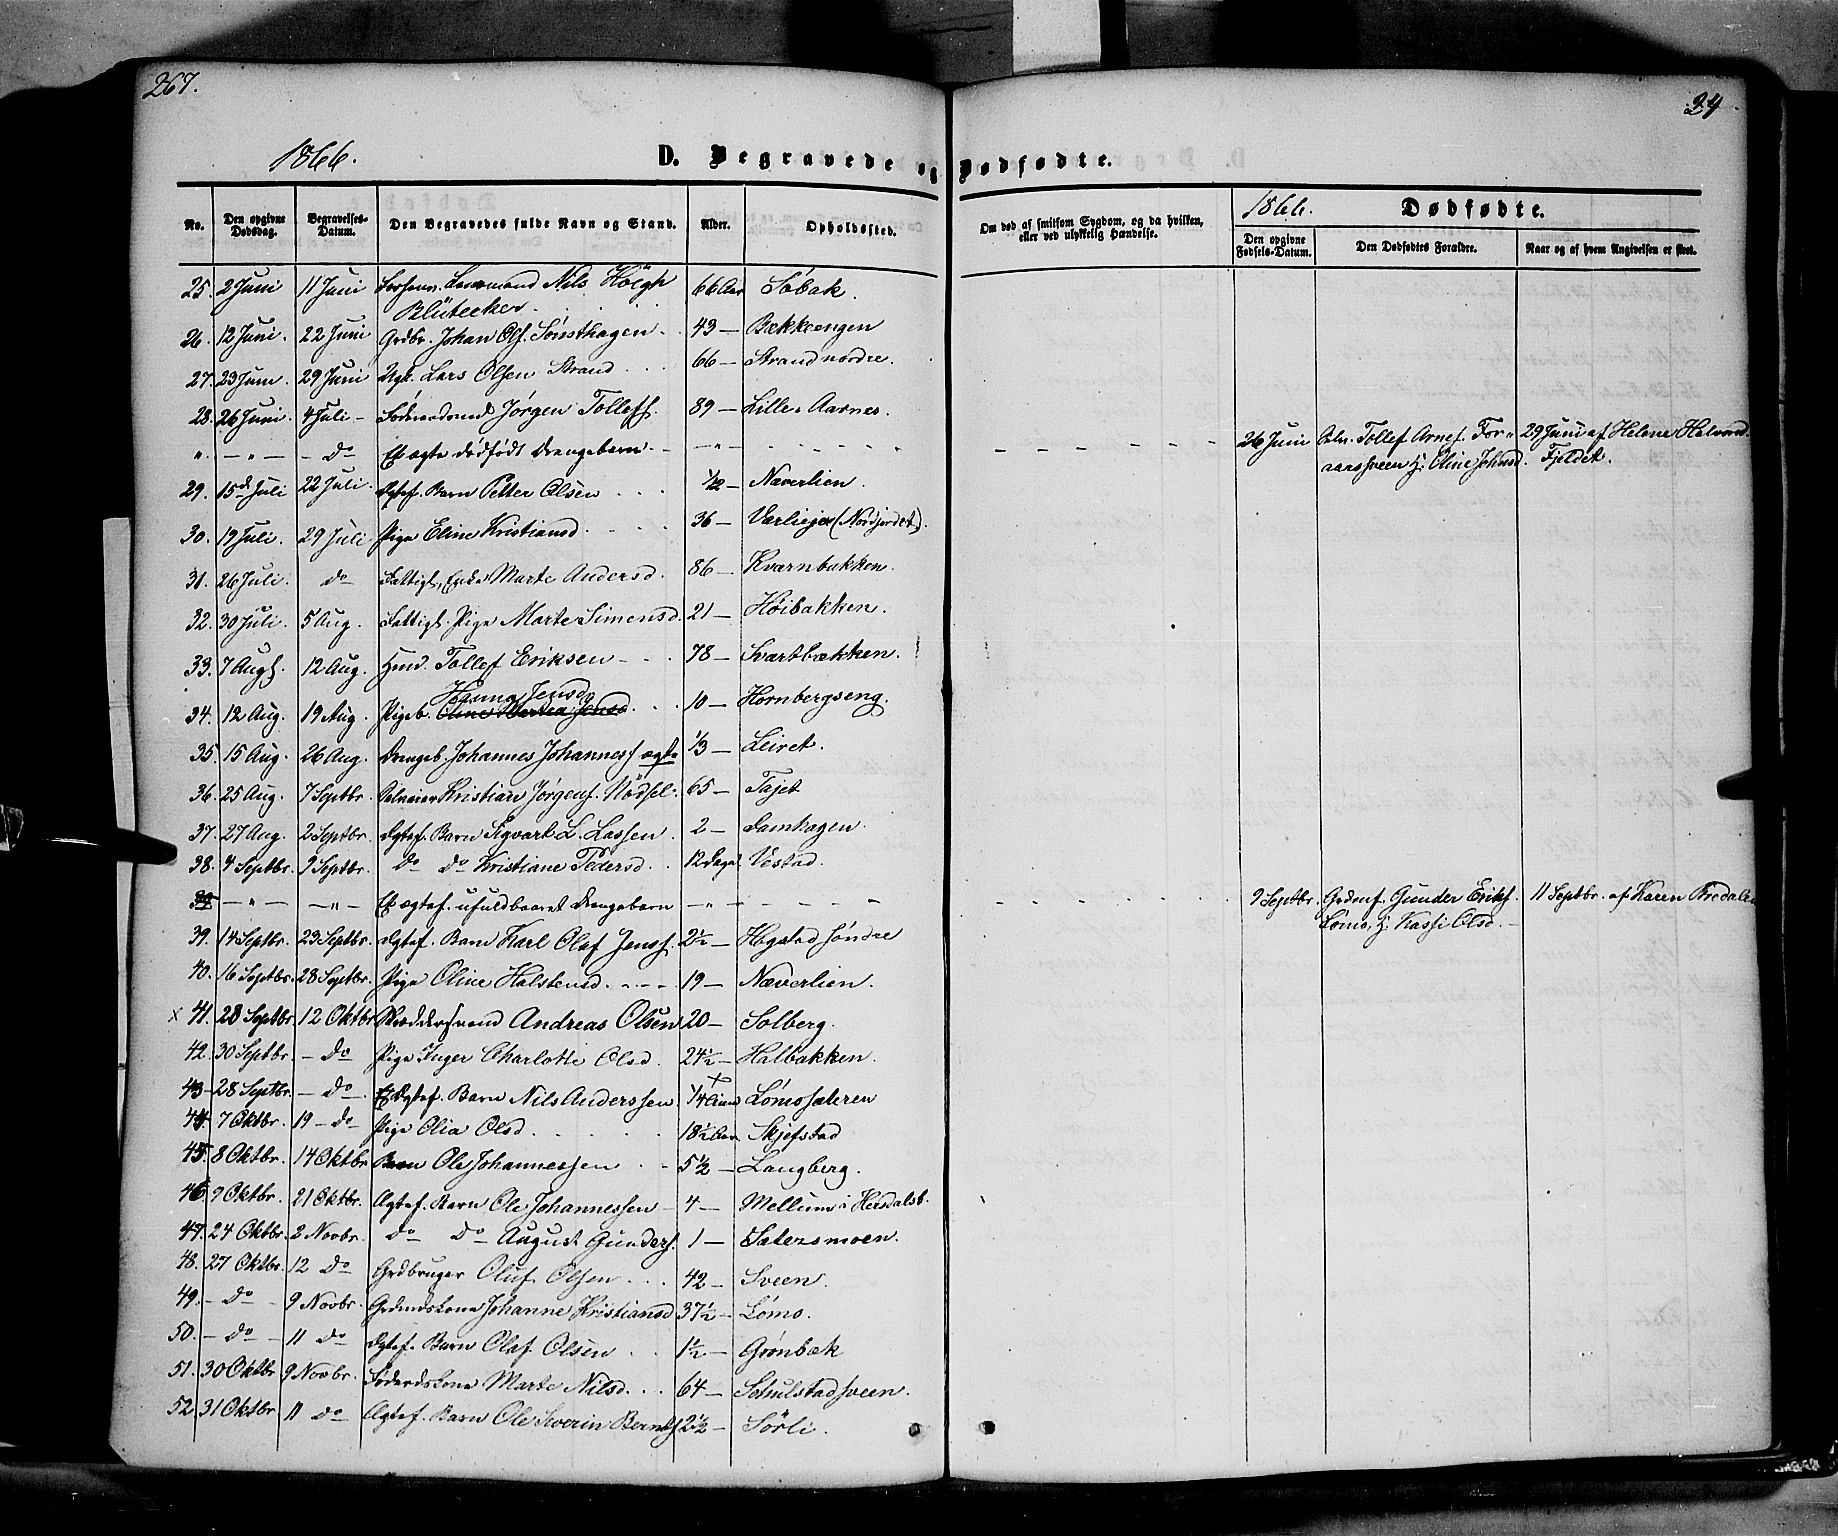 267.
24
1866.
D. Begravede og Dødfødte.
No. Den opgivne Dødsdag. Begravelses-Datum. Den Begravedes fulde Navn og Stand. Alder. Opholdssted.
Om død af smitsom Sygdom, og da hvilken, eller ved ulykkelig Hændelse.
1866. Dødfødte.
Den opgivne Fødsels-Datum. Den Dødfødtes Forældre. Naar og af hvem Angivelsen er skeet.
25. 2 Juni 11 Juni Nils Höegh 66 Aar Söbak.
Blütecker.
26. 12 Juni. 22 Juni Grdbr. Johan Ols. Sønsthagen 43 — Bækkeengen
27. 23 Juni. 29 Juni Ugk. Lars Olsen Strand 66 — Strand nordre.
28. 26 Juni 4 Juli — Jørgen Tollefs. 89 — Lille Aarnes.
" — " — — Do Et ægte dødfødt Drengebarn — — " — 26 Juni Tollef Arnes. For- 29 Juni af Helene Halvorsd.
aarssveen H: Eline Johnsd. Fjeldet.
29. 15de Juli 22 Juli Ægtef. Barn Petter Olsen 1/12 — Næverlien.
30. 19 Juli. 29 Juli Pige Eline Kristiansd. 36 — Værlieje (Nordjordet).
31. 26 Juli. Do Fattigl. Enke Marte Andersd. 86 — Kværnbakken.
32. 30 Juli. 5 Aug. Fattigl. Pige Marte Simensd. 21 — Höibakken.
33. 7 Aug. 12 Aug. Hmd. Tollef Eriksen 78 — Svartbækken.
Hanna Jensd.
34. 12 Aug. 19 Aug. Pigeb. Oline Martea Jensd. 10 — Hornbergseng.
35. 15 Aug. 26 Aug. Drengeb. Johannes Johanness. ægte 1/3 — Leiret.
36. 25 Aug. 7 Septbr. Kristian Jørgens. Nödsel. 65 — Tajet
37. 27 Aug. 2 Septbr. Ægtef. Barn Sigvart L. Lassen 2 — Damhagen.
38. 4 Septbr. 9 Septbr. Do Do Kristiane Pedersd. 12 Dage Vestad.
39 — " — — " — Et ægtef. ufuldbaaret Drengebarn — " — 9 Septbr. Grdmf. Gunder Eriks. 11 Septbr. af Karen Bredalen
Lömo, H: Kassi Olsd.
39. 14 Septbr. 23 Septbr. Ægtef. Barn Karl Olaf Jenss. 2 1/2 — Hogstad söndre
40. 16 Septbr. 28 Septbr. Pige Oline Halstensd. 19 — Næverlien.
x 41. 28 Septbr. 12 Oktbr. Skræddersvend Andreas Olsen 20 — Solberg.
42. 30 Septbr. — Do Pige Inger Charlotte Olsd. 24 1/2 — Halbakken.
43 — 28 Septbr. — Do — Et Ægtef. Barn Nils Anderssen 1/4 Lömosæteren
44. 7 Oktbr. 19 — Do — Pige Olia Olsd. 18 1/2 Aar Skjefstad
45. 8 Oktbr. 14 Oktbr Barn Ole Johannessen 5 1/2 — Langberg.
46 9 Oktbr. 21 Oktbr. Ægtef. Barn Ole Johannessen 4 — Mellum i Hersdalsb.
47. 24 Oktbr. 2 Novbr. Do Do August Gunders. 1 — Sætersmoen.
48. 27 Oktbr. 12 Do Grdbruger Oluf Olsen 42 — Sveen.
49. — Do — 9 Novbr. Johanne Kristiansd 37 1/2 — Lömo.
50. — Do — 11 Do Ægtef. Barn Olaf Olsen 1 1/2 — Grönbæk
51. 30 Oktbr 9 Novbr. Føderdskone Marte Nilsd. 64 — Schulstadsveen.
52 31 Oktbr 11 Do Ægtef. Barn Ole Severin Bernts. 2 1/2 — Sörli.